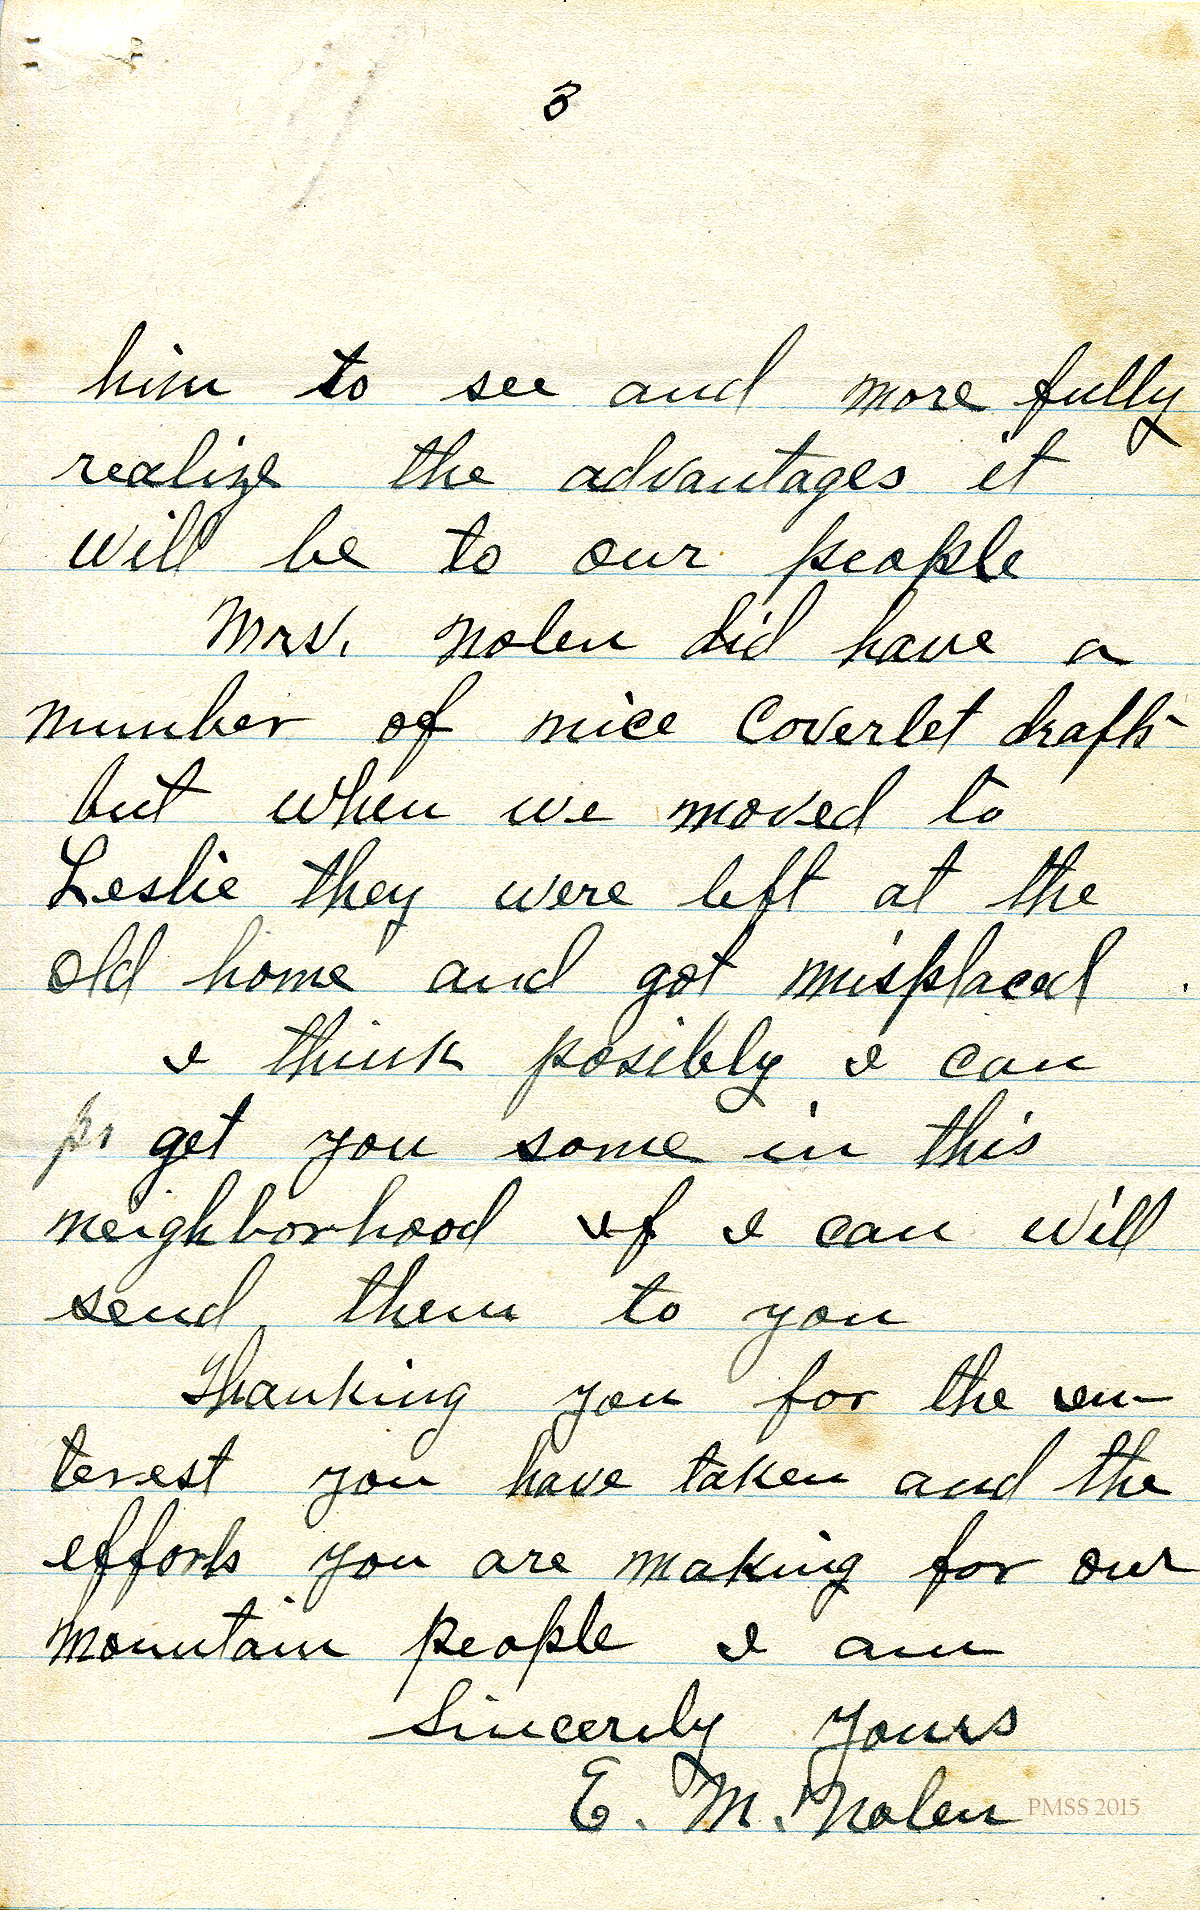 3
him to see and more fully
realize the advantages it
will be to our people
Mrs. Nolen did have a
number of nice Coverlet drafts
but when we moved to
Leslie they were left at the
old home and got misplaced.
I think posibly I can
get you some in this
neighborhood if I can will
send them to you
Thanking you for the in-
terest you have taken and the
efforts you are making for our
mountain people I am
Sincerily yours
E. M. Nolen
PMSS 2015